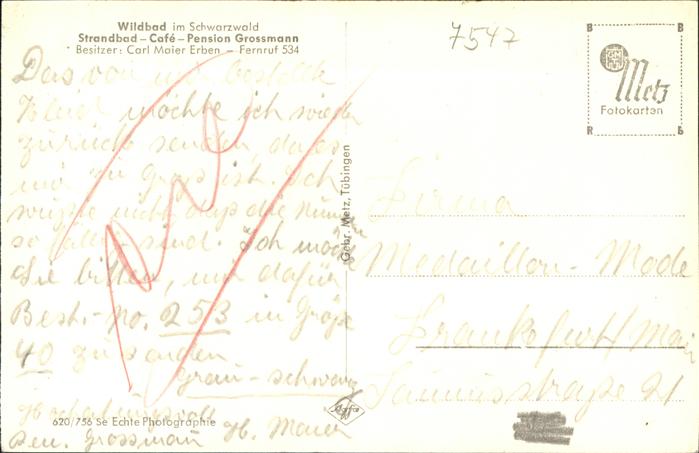 Wildbad im Schwarzwald
Strandbad – Café – Pension Grossmann
Besitzer: Carl Maier Erben – Fernruf 534
7547
Metz
Fotokarten
B B
R B
Das von mir bestellte
Kleid möchte ich wieder
zurück senden, da es
mir zu groß ist. Ich
wußte nicht, daß die Num̄ern
so fallen sind. Ich möchte
Sie bitten, mir dafür
Best.-No. 253 in Größe
40 zu senden
grau – schwarz
Hochachtungsvoll
Pen. Grossmann H. Maier
620/756 Se Echte Photographie
Agfa
Gebr. Metz, Tübingen
Firma
Medaillon-Mode
Frankfurt/Main
Taunusstraße 21